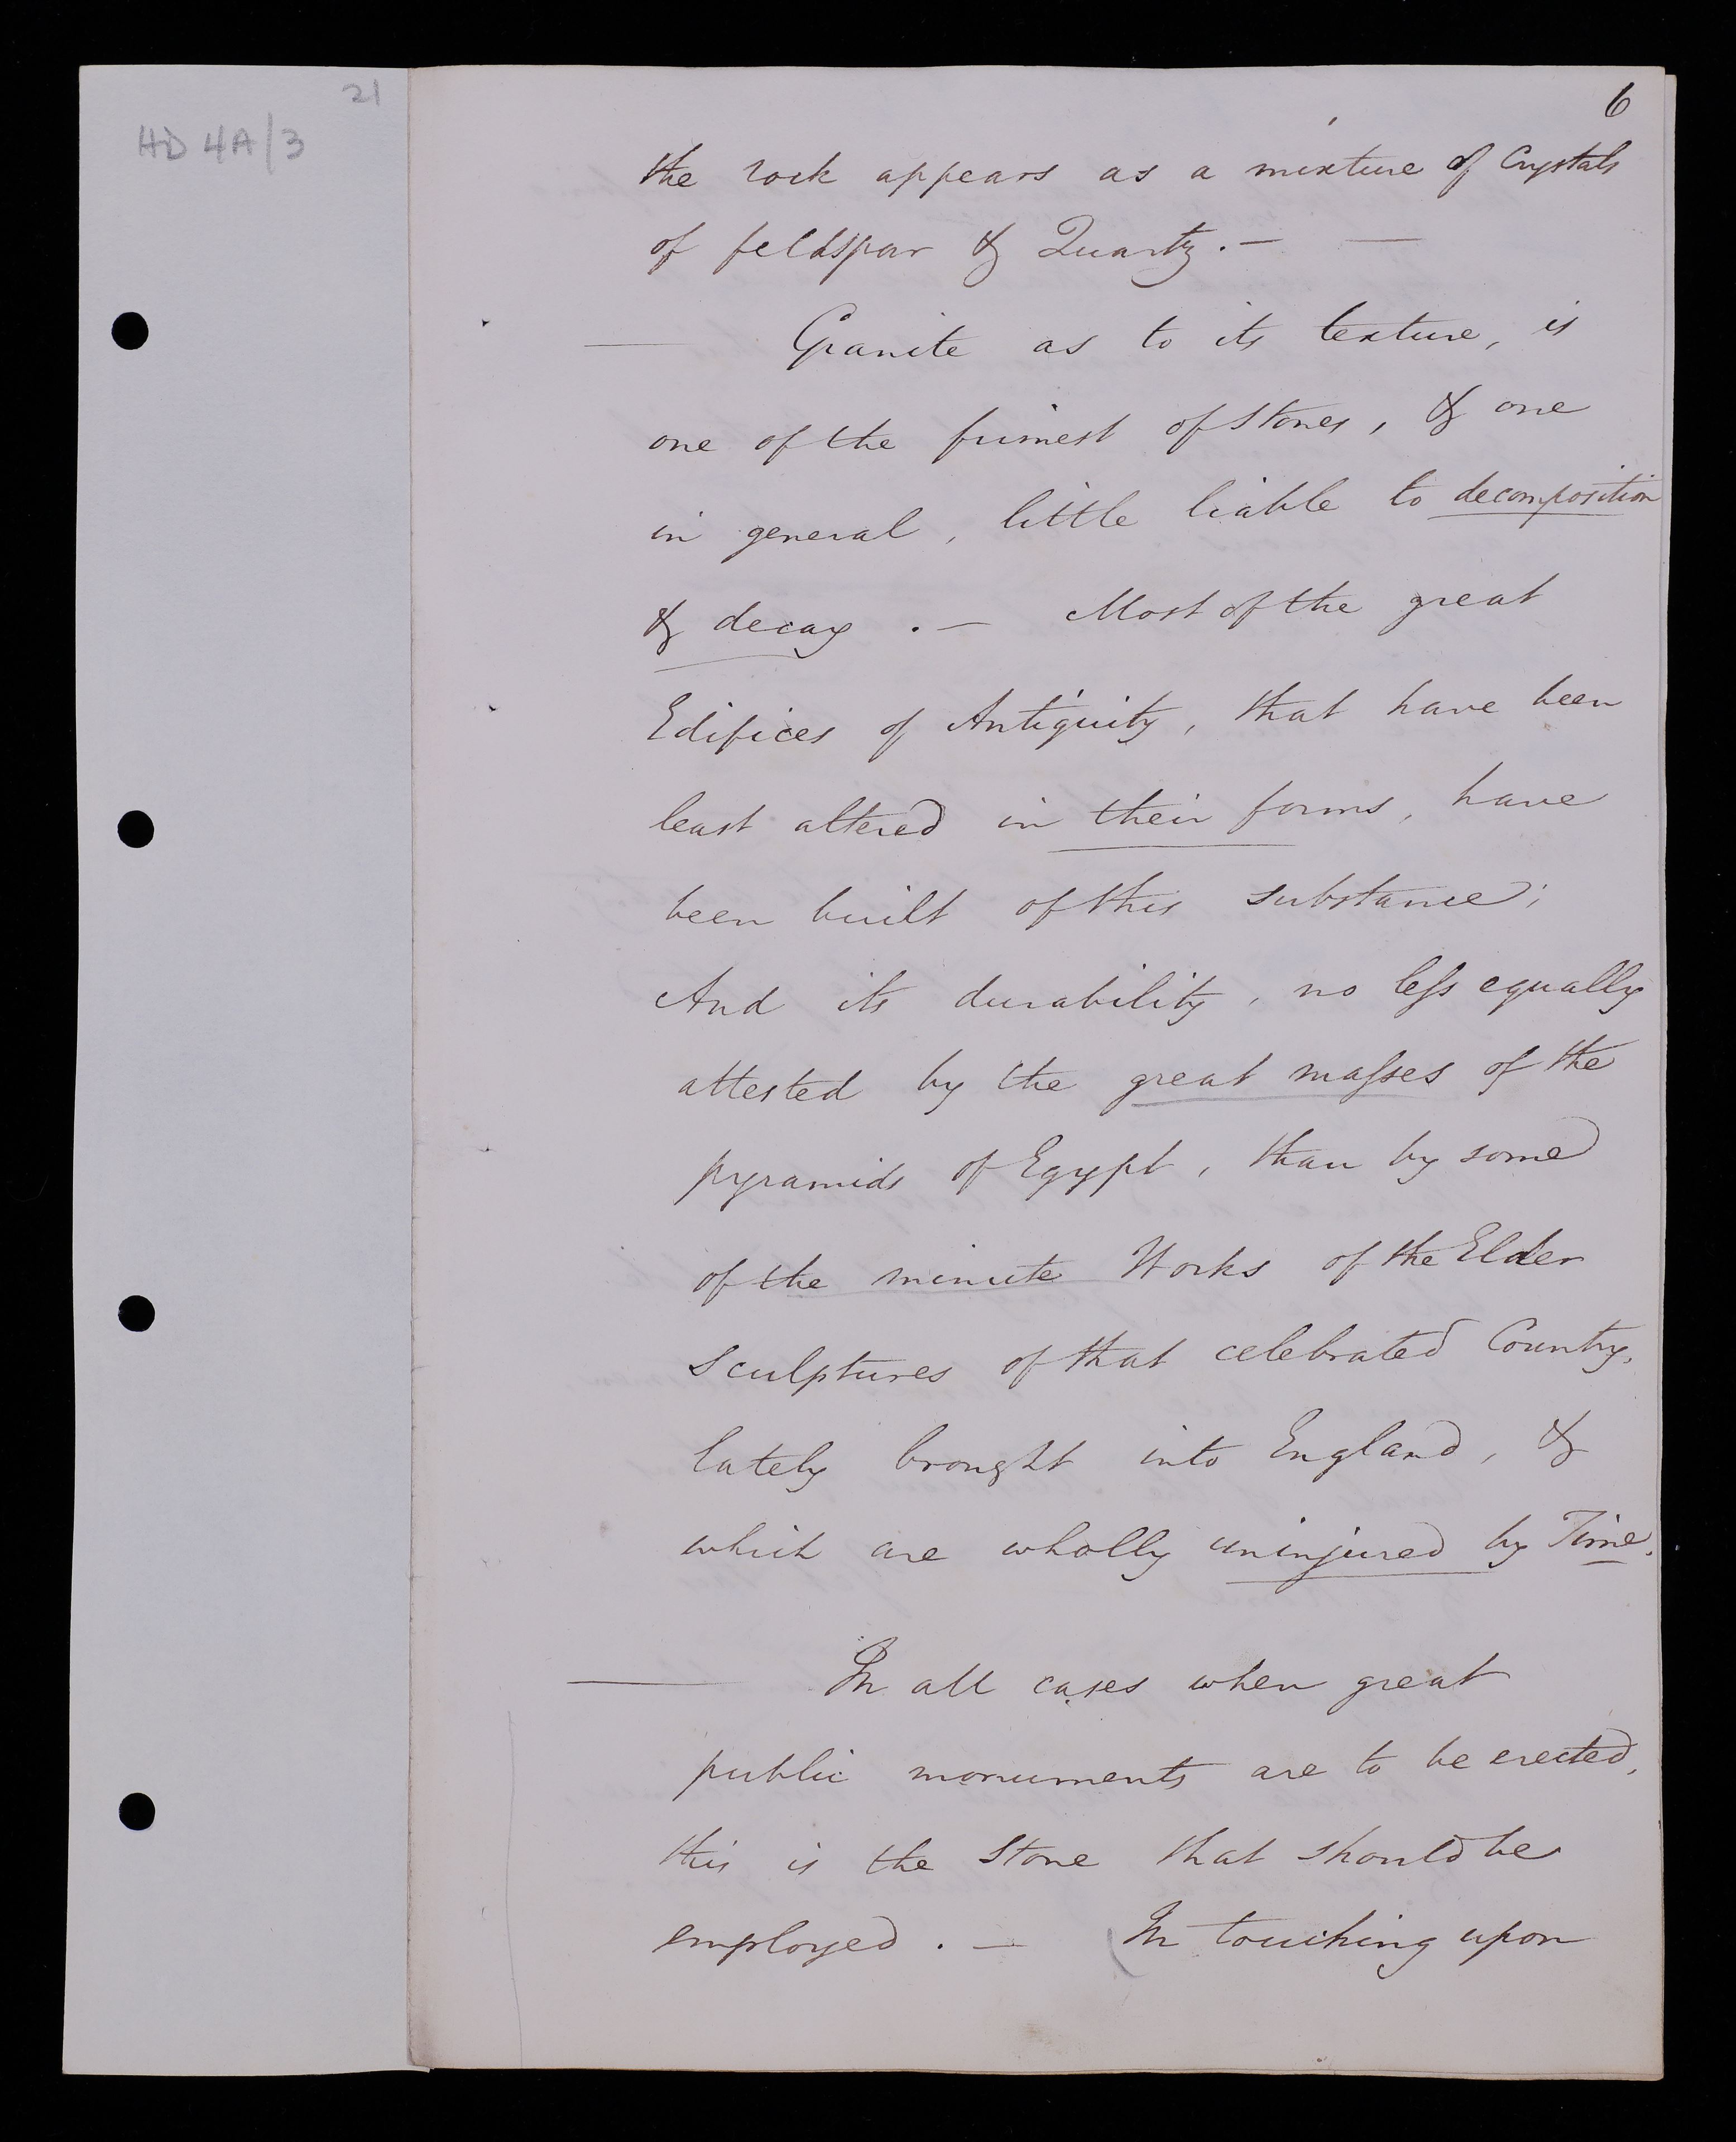 21
HD 4A/3
6
the rock appears as a mixture of Crystals
of feldspar & Quartz. — —
— Granite as to its texture, is
one of the firmest of Stones, & one
in general, little liable to decomposition
& decay. — Most of the great
Edifices of Antiquity, that have been
least altered in their forms, have
been built of this substance;
And its durability, no less equally
attested by the great masses of the
pyramids of Egypt, than by some
of the minute Works of the Elder
Sculptures of that celebrated Country,
lately brought into England, &
which are wholly uninjured by Time.
— In all cases when great
public monuments are to be erected,
this is the Stone that should be
employed. — (In touching upon